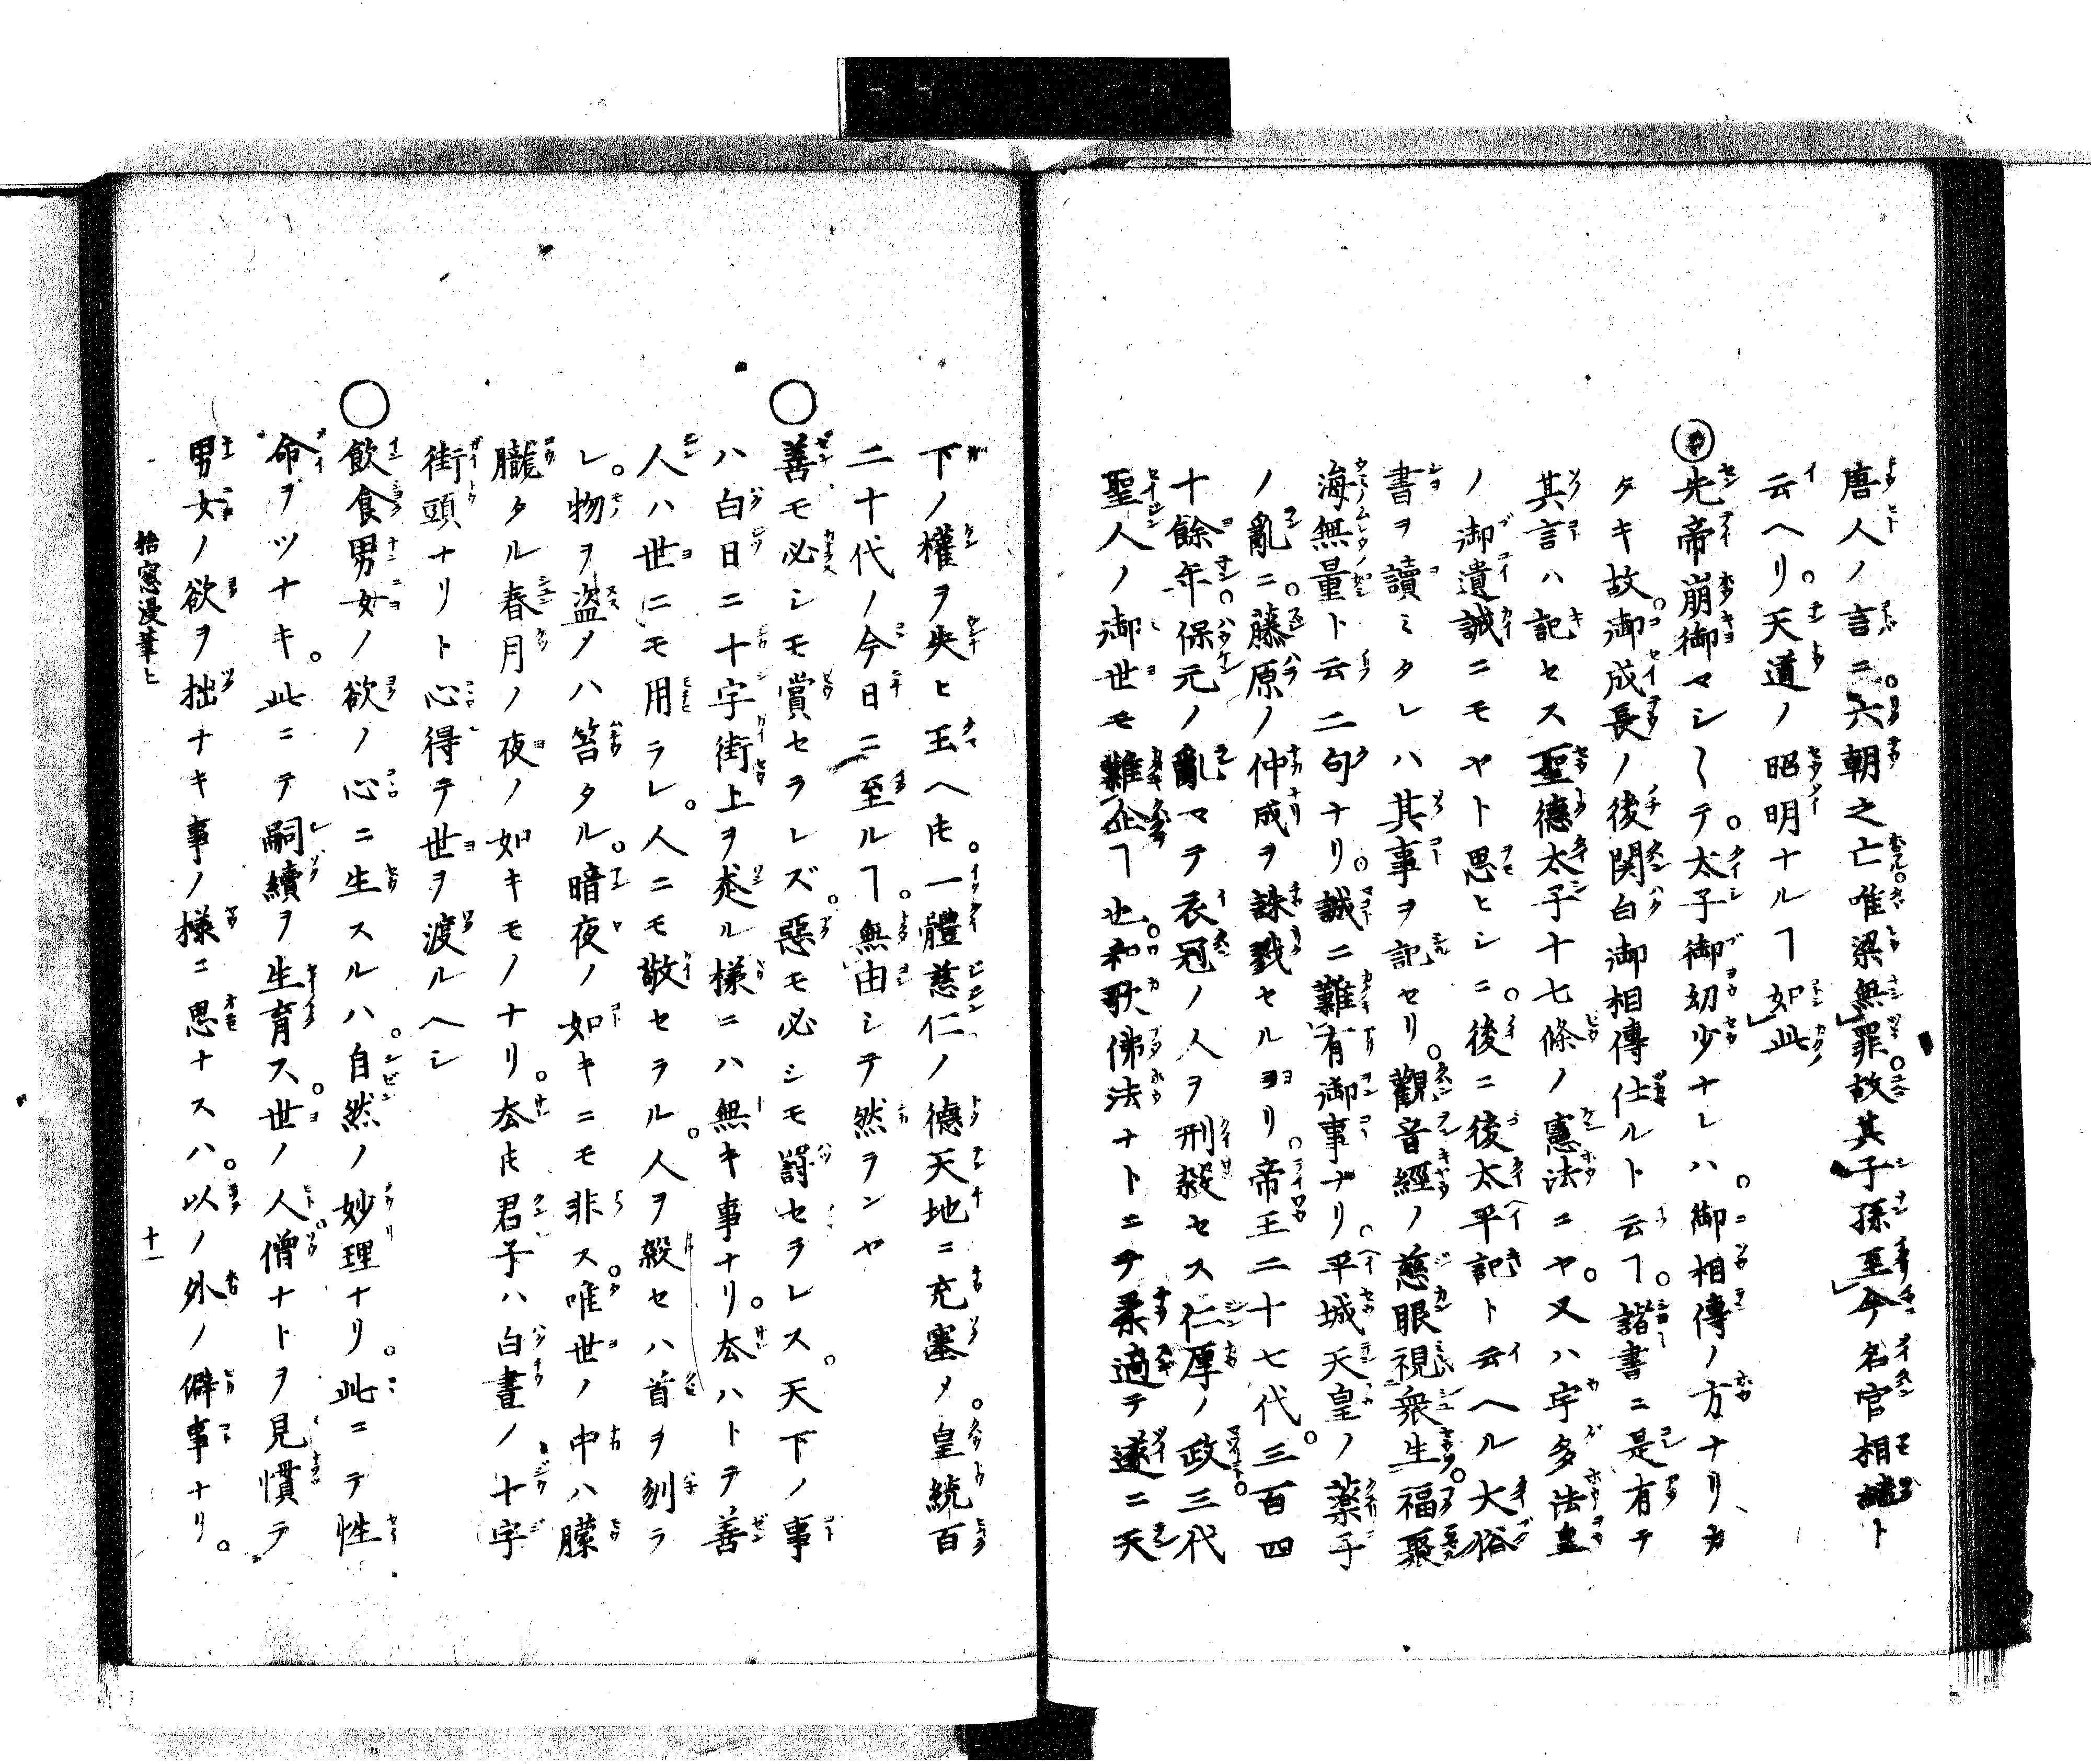 唐人ノ言ニ。六朝之亡唯梁無罪。故其子孫至今名官相ト
云ヘリ。天道ノ昭明ナルヿ如此
先帝崩御マシ〱テ。太子御幼少ナレハ。御相傳ノ方ナリカ
タキ故。御成長ノ後関白御相傳仕ルト云ヿ。諸書ニ是有テ
其言ハ記セス聖德太子十七條ノ憲法ニヤ。又ハ宇多法皇
ノ御遺誡ニモヤト思ヒシニ。後ニ後太平記ト云ヘル大俗
書ヲ讀ミタレハ其事ヲ記セリ。觀音經ノ慈眼視衆生。福聚
海無量ト云二句ナリ。誠ニ難有御事ナリ。平城天皇ノ藥子
ノ亂ニ。藤原ノ仲成ヲ誅戮セルヨリ。帝王二十七代。三百四
十餘年。保元ノ亂マテ衣冠ノ人ヲ刑殺セス仁厚ノ政。三代
聖人ノ御世モ難企ヿ也。和歌佛法ナトニテ柔適テ遂ニ天
下ノ權ヲ失ヒ玉ヘ𪜈。一體慈仁ノ德天地ニ充塞メ。皇統百
二十代ノ今日ニ至ルヿ。無由シテ然ランヤ
善モ必シモ賞セラレズ。惡モ必シモ罸セラレス。天下ノ事
ハ白日ニ十字街上ヲ赱ル様ニハ無キ事ナリ。厺ハトテ善
人ハ世ニモ用ラレ。人ニモ敬セラル。人ヲ殺セハ首ヲ刎ラ
レ。物ヲ盗ノハ笞タル。暗夜ノ如キニモ非ス。唯世ノ中ハ朦
朧タル春月ノ夜ノ如キモノナリ。厺𪜈君子ハ白晝ノ十字
街頭ナリト心得テ世ヲ渡ルヘシ
飲食男女ノ欲ノ心ニ生スルハ。自然ノ妙理ナリ。此ニテ性
命ヲツナキ。此ニテ嗣續ヲ生育ス。世ノ人。僧ナトヲ見慣テ
男女ノ欲ヲ拙ナキ事ノ様ニ思ナスハ。以ノ外ノ僻事ナリ。
窓漫筆上
十一